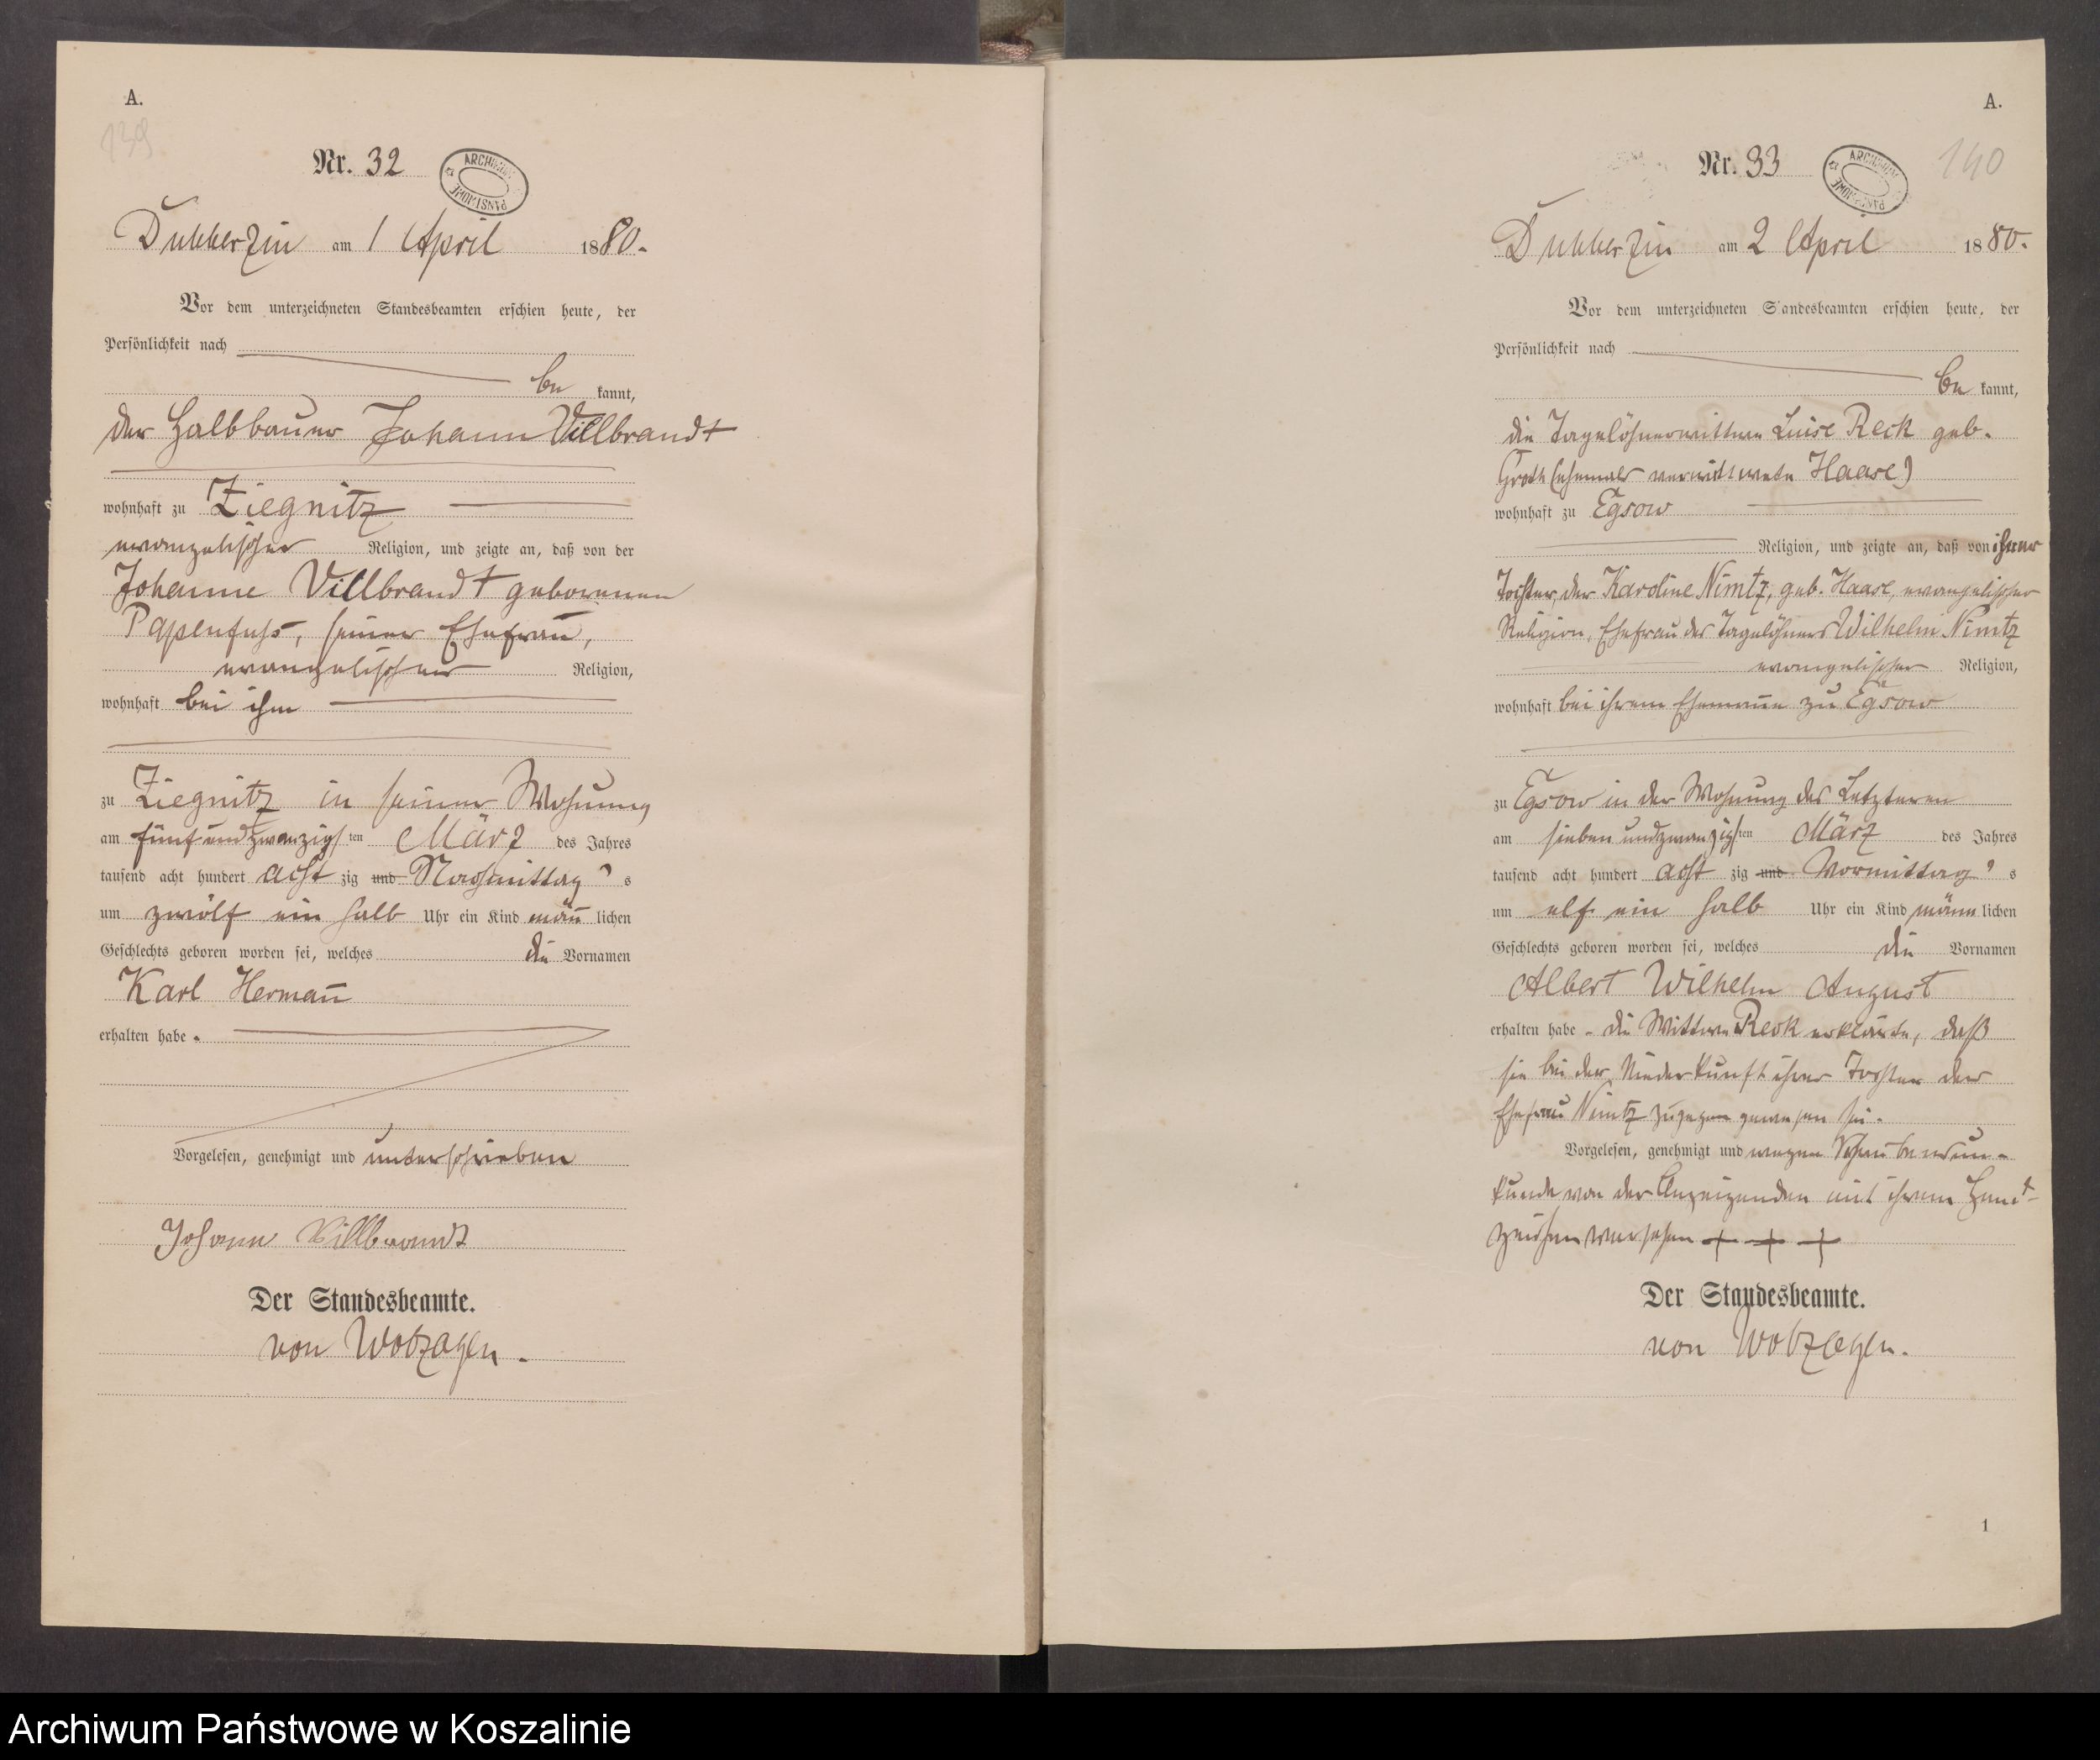 A.
139
Nr. 32
Dubberzin am 1 April 1880.
Vor dem unterzeichneten Standesbeamten erschien heute, der
Persönlichkeit nach
be kannt,
der Halbbauer Johann Villbrandt
wohnhaft zu Ziegnitz
evangelischer Religion, und zeigte an, daß von der
Johanne Villbrandt geborenen
Papenfuhs, seiner Ehefrau,
evangelischer Religion,
wohnhaft bei ihm
zu Ziegnitz in seiner Wohnung
am fünf und zwanzigsten März des Jahres
tausend acht hundert acht zig und Nachmittag s
um zwölf ein halb Uhr ein Kind män̄ lichen
Geschlechts geboren worden sei, welches die Vornamen
Karl Herman̄
erhalten habe.
Vorgelesen, genehmigt und unterschrieben
Johann Villbrandt
Der Standesbeamte.
von Wobzagen.
A.
140
Nr. 33
Dubberzin am 2 April 1880.
Vor dem unterzeichneten Standesbeamten erschien heute, der
Persönlichkeit nach
be kannt,
die Tagelöhnerwittwe Luise Reck geb.
Groth (ehemals verwittwete Haase)
wohnhaft zu Egsow
Religion, und zeigte an, daß von ihrer
Tochter, der Karoline Nimtz, geb. Haase, evangelischer
Religion, Ehefrau des Tagelöhners Wilhelm Nimtz
evangelischer Religion,
wohnhaft bei ihrem Ehemane zu Egsow
zu Egsow in der Wohnung des Letzteren
am sieben und zwanzigsten März des Jahres
tausend acht hundert acht zig und Vormittag s
um elf ein halb Uhr ein Kind männ lichen
Geschlechts geboren worden sei, welches die Vornamen
Albert Wilhelm August
erhalten habe. die Wittwe Reck erklärte, daß
sie bei der Niederkunft ihrer Tochter der
Ehefrau Nimtz zugegen gewesen sei.
Vorgelesen, genehmigt und wegen Schreibensun-
kunde von der Anzeigenden mit ihrem Hand-
zeichen versehen + + +
Der Standesbeamte.
von Wobzagen.
1
Archiwum Państwowe w Koszalinie